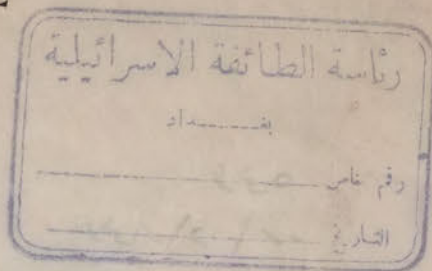 رئاسة الطائفة الاسرائيلية
بغـــــداد
رقم خاص
التاريخ